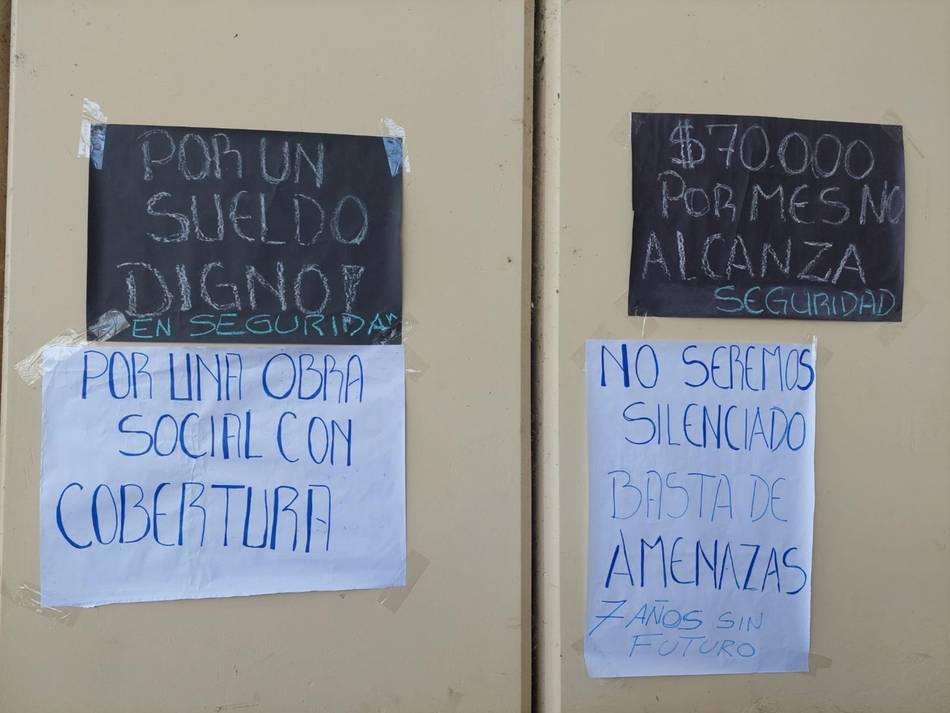 POR UN
SUELDO
DIGNO!
EN SEGURIDAD
POR UNA OBRA
SOCIAL CON
COBERTURA
$70.000
POR MES NO
ALCANZA
SEGURIDAD
NO SEREMOS
SILENCIADO
BASTA DE
AMENAZAS
7 AÑOS SIN
FUTURO